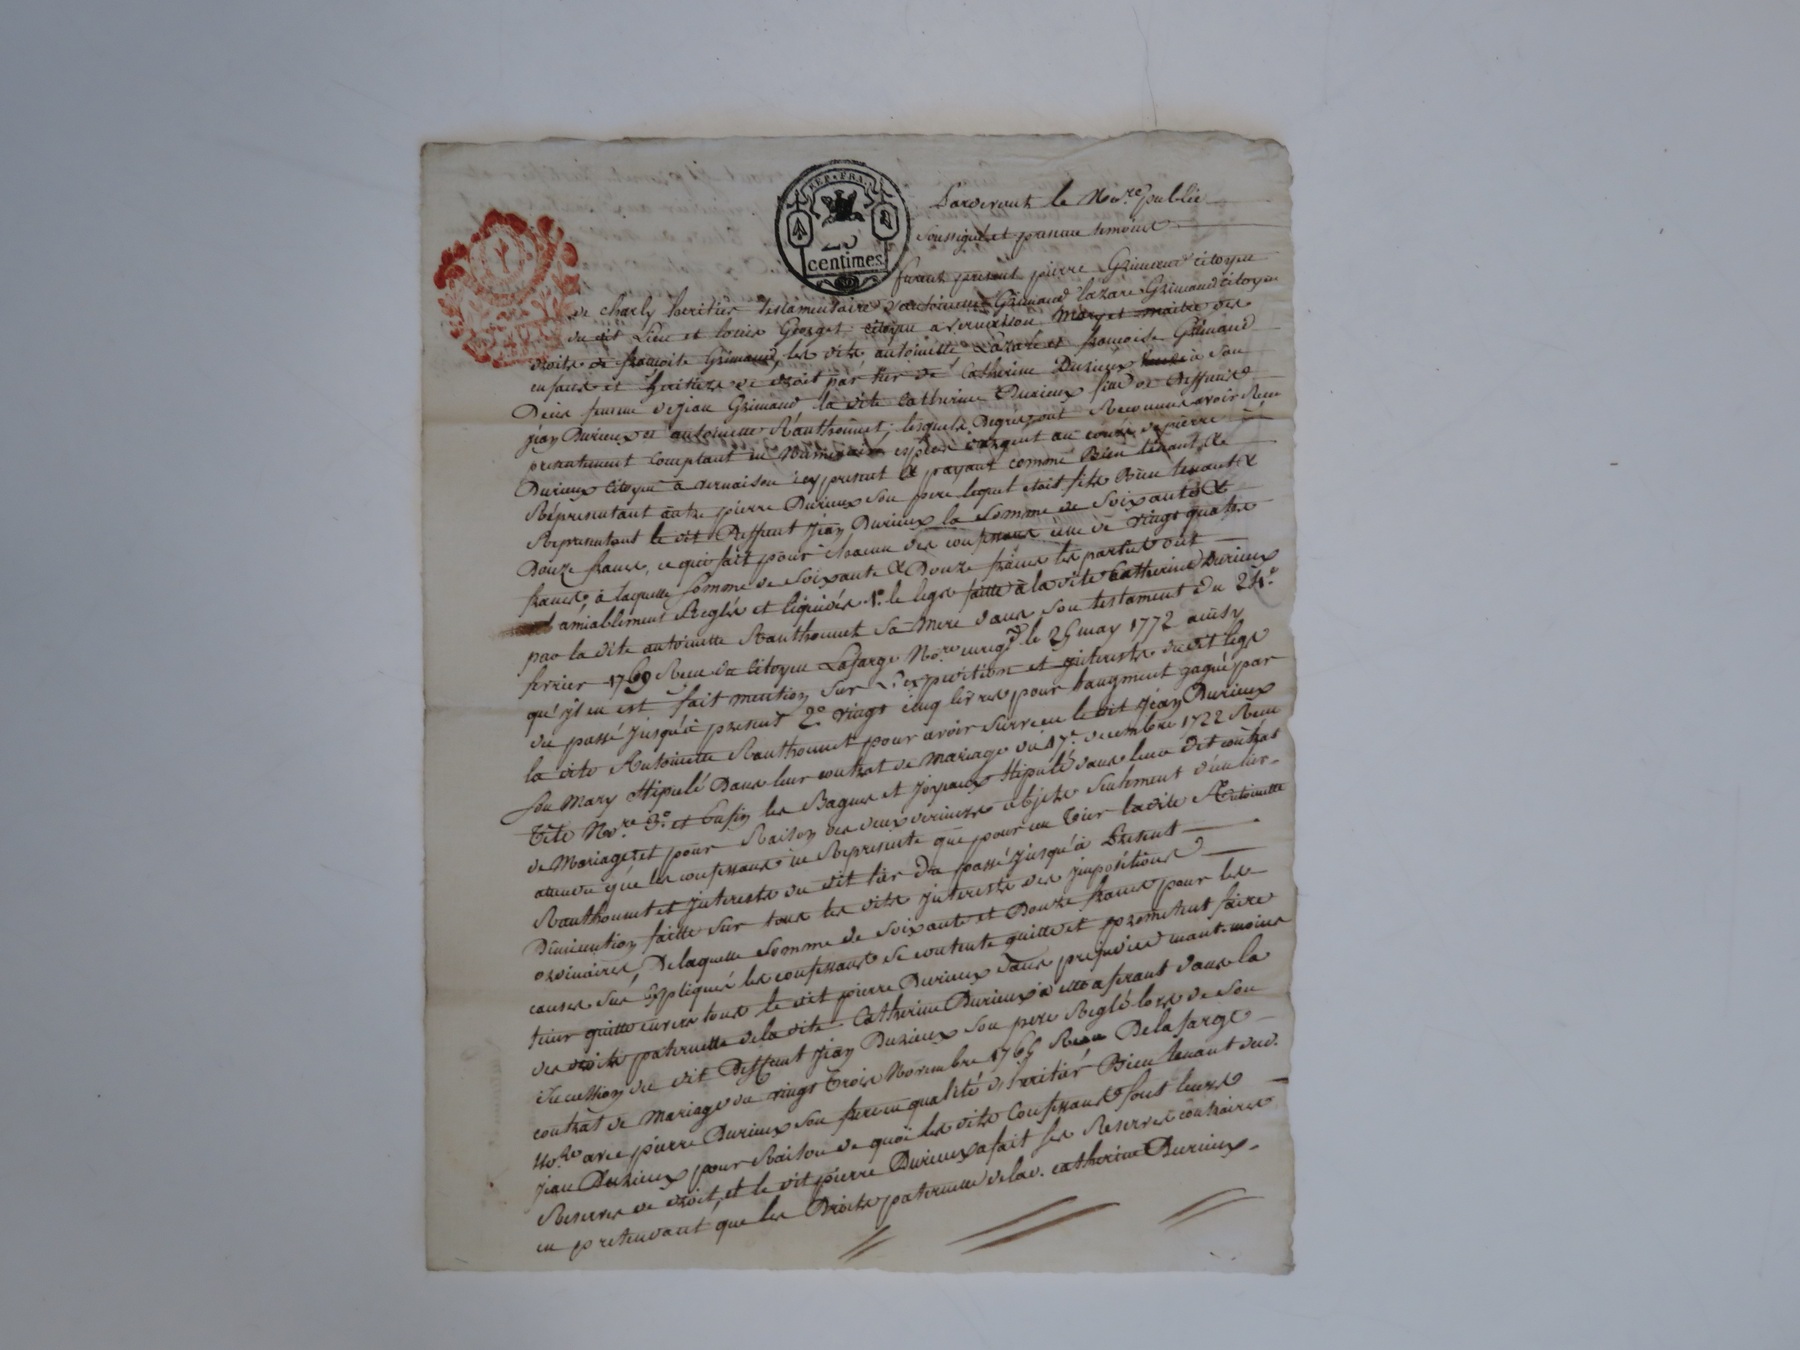 REP. FRA.
25
centimes
Pardevant le No.re public
soussigné et presans temoins
furent present pierre Grimaud citoyen
de charly heritier testamentaire d'antoinette Grimaud lazare Grimaud citoyen
du dit Lieu et louis Georges citoyen a vernaison Mary et maitre des
droits de françoise Grimaud, les dits antoinette Lazare et francoise Grimaud
enfants et heritiers de droit par tier de Catherine Durieux a son
Deces femme de jean Grimaud la dite Catherine Durieux fille de Deffunts
jean Durieux et antoinette Rauthonnet; lesquels Degré ont Reconnus avoir Reçu
presentement comptant en Numeraire espece d'argent au cours de pierre
Durieux citoyen a vernaison icy present et payant comme Bien tenant et
Représentant autre pierre Durieux son pere lequel etoit fils Bien tenant et
Representant le dit Deffunt jean Durieux la somme de soixante et
Douze francs, ce qui fait pour chacun des confessans celle de vingt quatre
francs, à laquelle somme de soixante et Douze francs les parties ont
amiablement Reglés et liquidés 1.º le legs faitte à la dite Catherine Durieux
par la dite antoinette Rauthonnet sa mere dans son testament du 24.e
fevrier 1769 Reçu du citoyen Lafarge No.re enreg.é le 29 may 1772 ainsy
qu'il en est fait mention sur L'expedition et interests du dit legs
du passé jusqu'à present 2.º vingt cinq livres pour l'augment gagné par
la dite Antoinette Rauthonnet pour avoir survecu le dit jean Durieux
son Mary stipulé Dans leur contrat de Mariage du 17.e decembre 1722 Reçu
Tête No.re 3.º et enfin les Bagues et joyeaux stipulé dans leur dit contrat
de Mariage, et pour Raison des deux derniers objets seulement d'un tier
attendu que les confessans ne Represente que pour un Tier ladite Antoinette
Rauthonnet et interests du dit tier Du passé jusqu'à Present
Diminution faitte sur tous les dits interests des impositions
ordinaires, De laquelle somme de soixante et Douze francs pour les
causes sus Expliqués les confessans se contente quitte et promettent faire
tenir quitte envers tous le dit pierre Durieux sans prejudice neant-moins
des droits paternelle de la dite Catherine Durieux a elle aferant dans la
succession du dit Deffunt jean Durieux son pere Reglé lors de son
contrat de Mariage du vingt trois Novembre 1765 Reçu Delafarge
No.re avec pierre Durieux son frere en qualité d'heritier Bien tenant dud.
jean Durieux pour Raison de quoi les dits Confessans font leurs
Reserves de droit, et le dit pierre Durieux a fait ses Reserves contraires
en pretendant que les Droits paternelle de lad. catherine Durieux